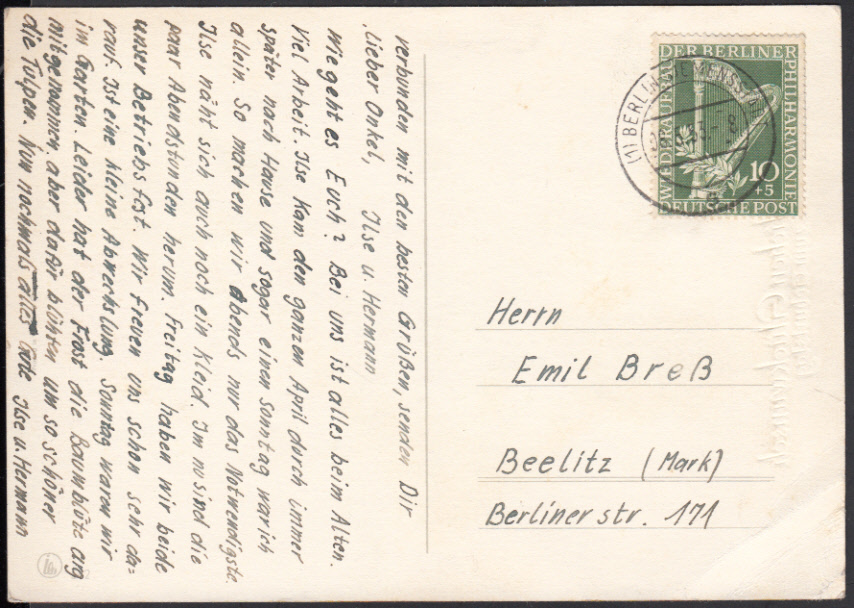 verbunden mit den besten Grüßen, senden Dir
lieber Onkel, Ilse u. Hermann
Wie geht es Euch? Bei uns ist alles beim Alten.
Viel Arbeit. Ilse kam den ganzen April durch immer
später nach Hause und sogar einen Sonntag war ich
allein. So machen wir Abends nur das Notwendigste.
Ilse näht sich auch noch ein Kleid. Im nu sind die
paar Abendstunden herum. Freitag haben wir beide
unser Betriebsfest. Wir freuen uns schon sehr da-
rauf. Ist eine kleine Abwechslung. Sonntag waren wir
im Garten. Leider hat der Frost die Baumblüte arg
mitgenommen, aber dafür blühten um so schöner
die Tulpen. Nun nochmals alles Gute Ilse u. Hermann
WIEDERAUFBAU DER BERLINER PHILHARMONIE
10
+5
DEUTSCHE POST
(1) BERLIN-SIEMENSS
Herrn
Emil Breß
Beelitz (Mark)
Berliner str. 171